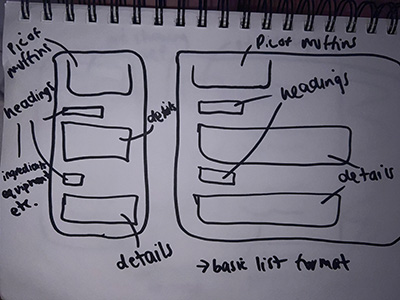 Pic of
muffins
headings
details
ingredients
equipment
etc.
details
Pic of muffins
headings
details
→ basic list format